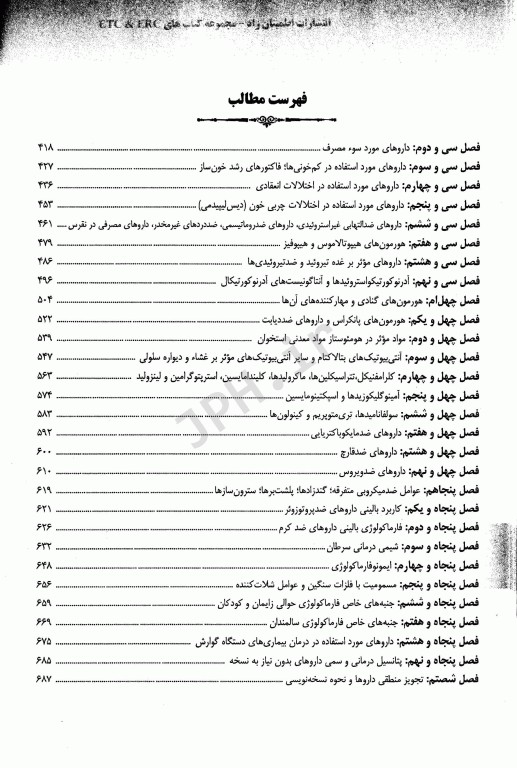 انتشارات اطمینان راد - مجموعه کتاب های ETC & ERC
فهرست مطالب
فصل سی و دوم: داروهای مورد سوء مصرف ۴۱۸
فصل سی و سوم: داروهای مورد استفاده در کم‌خونی‌ها؛ فاکتورهای رشد خون‌ساز ۴۲۷
فصل سی و چهارم: داروهای مورد استفاده در اختلالات انعقادی ۴۳۶
فصل سی و پنجم: داروهای مورد استفاده در اختلالات چربی خون (دیس‌لیپیدمی) ۴۵۳
فصل سی و ششم: داروهای ضدالتهابی غیراستروئیدی، داروهای ضدروماتیسمی، ضددردهای غیرمخدر، داروهای مصرفی در نقرس ۴۶۱
فصل سی و هفتم: هورمون‌های هیپوتالاموس و هیپوفیز ۴۷۹
فصل سی و هشتم: داروهای مؤثر بر غده تیروئید و ضدتیروئیدی‌ها ۴۸۶
فصل سی و نهم: آدرنوکورتیکواستروئیدها و آنتاگونیست‌های آدرنوکورتیکال ۴۹۶
فصل چهل‌ام: هورمون‌های گنادی و مهارکننده‌های آن‌ها ۵۰۴
فصل چهل و یکم: هورمون‌های پانکراس و داروهای ضددیابت ۵۲۲
فصل چهل و دوم: مواد مؤثر در هومئوستاز مواد معدنی استخوان ۵۳۹
فصل چهل و سوم: آنتی‌بیوتیک‌های بتالاکتام و سایر آنتی‌بیوتیک‌های مؤثر بر غشاء و دیواره سلولی ۵۴۷
فصل چهل و چهارم: کلرامفنیکل،تتراسیکلین‌ها، ماکرولیدها، کلیندامایسین، استرپتوگرامین و لینزولید ۵۶۳
فصل چهل و پنجم: آمینوگلیکوزیدها و اسپکتینومایسین ۵۷۴
فصل چهل و ششم: سولفانامیدها، تری‌متوپریم و کینولون‌ها ۵۸۳
فصل چهل و هفتم: داروهای ضدمایکوباکتریایی ۵۹۲
فصل چهل و هشتم: داروهای ضدقارچ ۶۰۰
فصل چهل و نهم: داروهای ضدویروس ۶۱۰
فصل پنجاهم: عوامل ضدمیکروبی متفرقه؛ گندزداها؛ پلشت‌برها؛ سترون‌سازها ۶۱۹
فصل پنجاه و یکم: کاربرد بالینی داروهای ضدپروتوزوئر ۶۲۱
فصل پنجاه و دوم: فارماکولوژی بالینی داروهای ضد کرم ۶۲۶
فصل پنجاه و سوم: شیمی درمانی سرطان ۶۳۲
فصل پنجاه و چهارم: ایمونوفارماکولوژی ۶۴۸
فصل پنجاه و پنجم: مسمومیت با فلزات سنگین و عوامل شلات‌کننده ۶۵۶
فصل پنجاه و ششم: جنبه‌های خاص فارماکولوژی حوالی زایمان و کودکان ۶۵۹
فصل پنجاه و هفتم: جنبه‌های خاص فارماکولوژی سالمندان ۶۶۹
فصل پنجاه و هشتم: داروهای مورد استفاده در درمان بیماری‌های دستگاه گوارش ۶۷۵
فصل پنجاه و نهم: پتانسیل درمانی و سمی داروهای بدون نیاز به نسخه ۶۸۵
فصل شصتم: تجویز منطقی داروها و نحوه نسخه‌نویسی ۶۸۷
JPH.ir